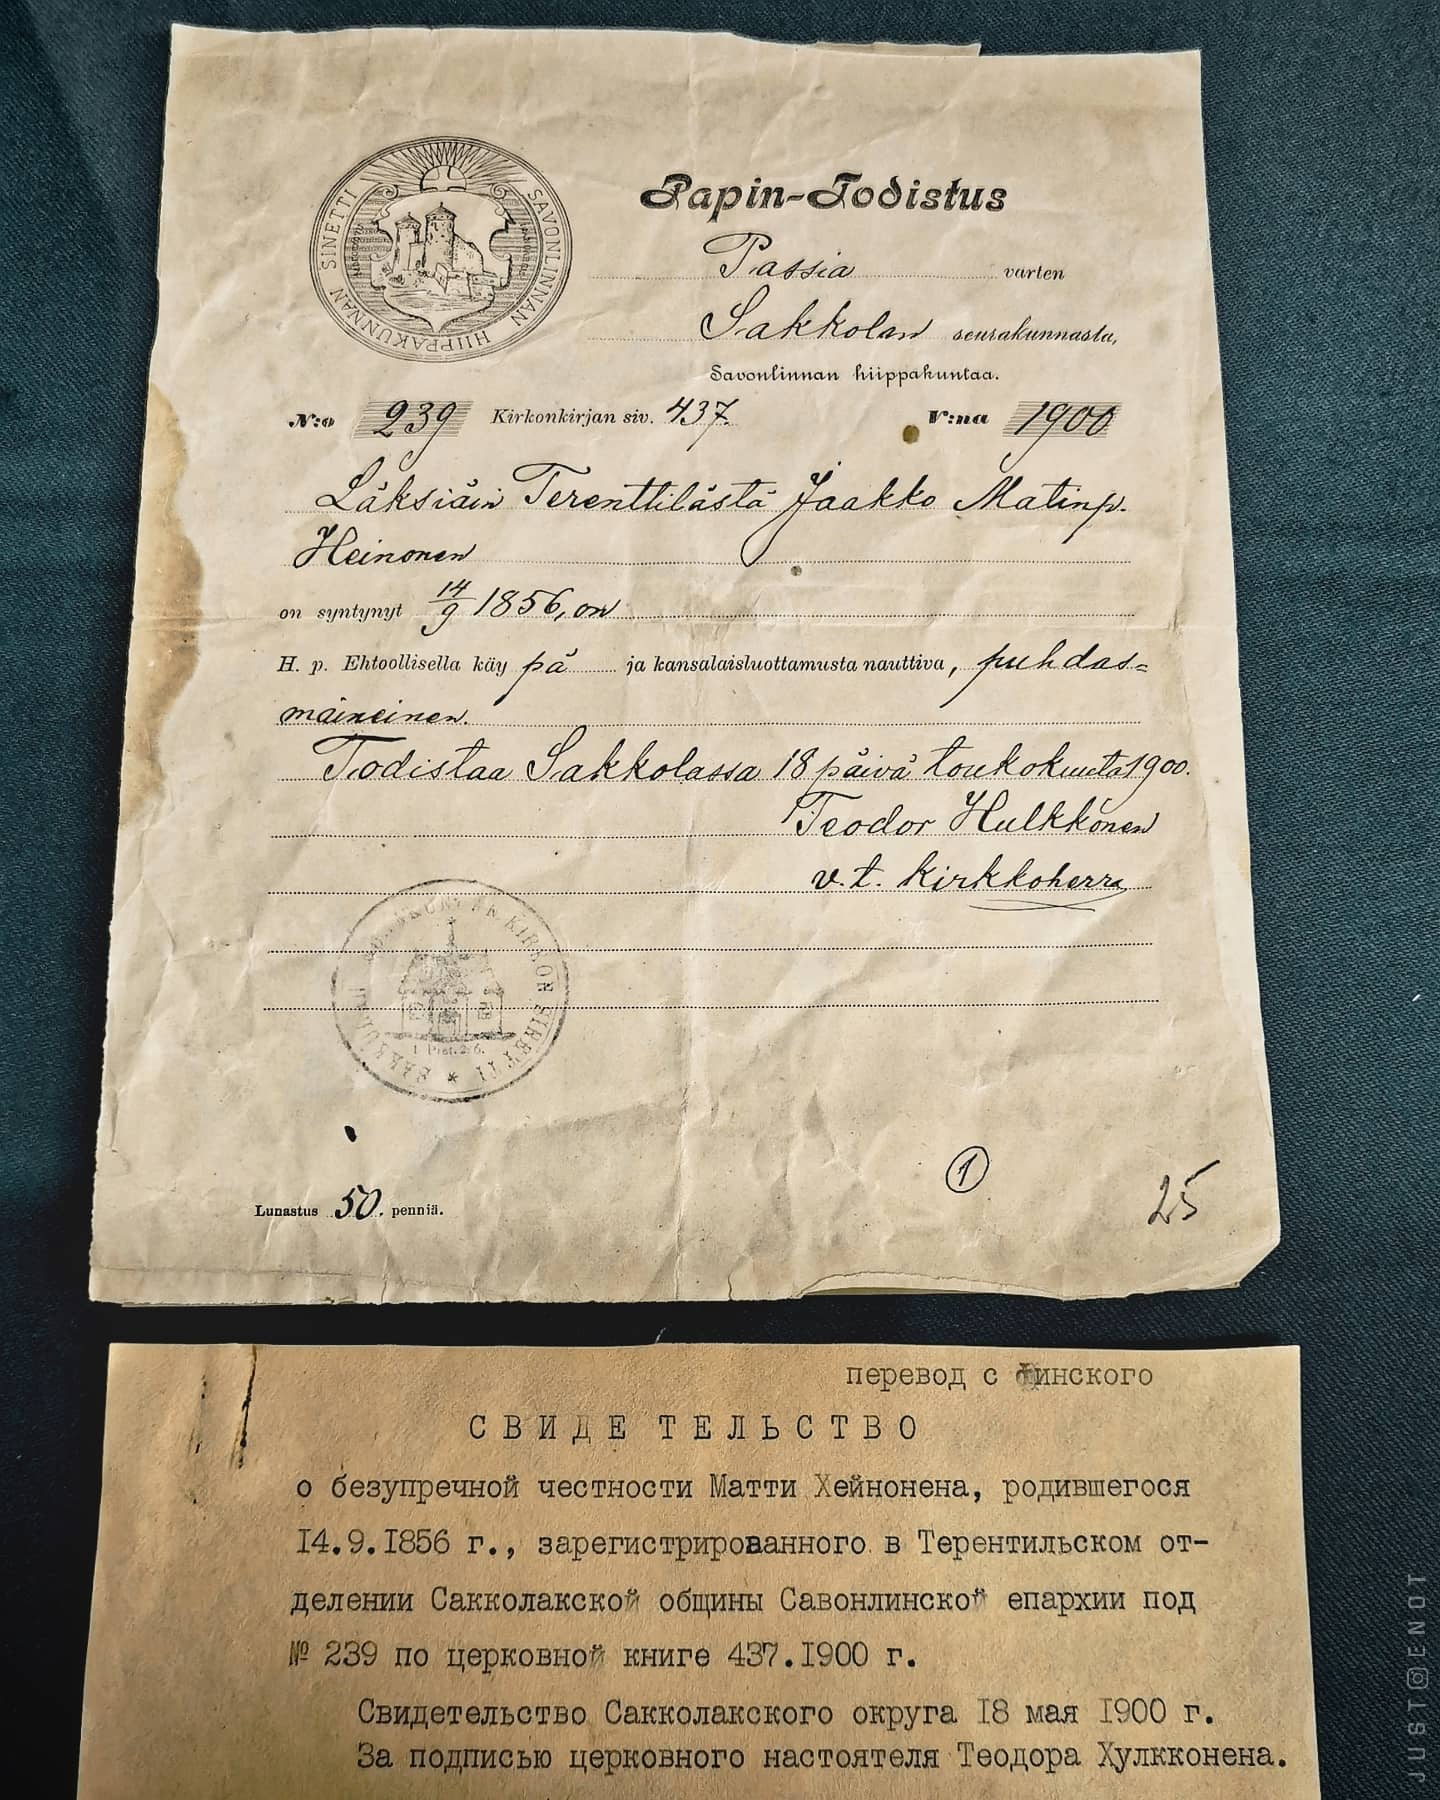 SAVONLINNAN HIIPPAKUNNAN SINETTI
Papin-Todistus
Passia varten
Sakkolan seurakunnasta,
Savonlinnan hiippakuntaa.
N:o 239 Kirkonkirjan siv. 437. V:na 1900
Läksiäin Terenttilästä Jaakko Matinp.
Heinonen
on syntynyt 14/9 1856, on
H. p. Ehtoollisella käy pä ja kansalaisluottamusta nauttiva, puhdas=
maineinen.
Todistaa Sakkolassa 18 päivä toukokuuta 1900.
Teodor Hulkkonen
v.t. kirkkoherra
KIRKON SINETTI * SAKKOLAN
1 Piet. 2:6.
1
25
Lunastus 50. penniä.
перевод с финского
СВИДЕТЕЛЬСТВО
о безупречной честности Матти Хейнонена, родившегося
14.9.1856 г., зарегистрированного в Терентильском от-
делении Сакколакской общины Савонлинской епархии под
№ 239 по церковной книге 437.1900 г.
Свидетельство Сакколакского округа 18 мая 1900 г.
За подписью церковного настоятеля Теодора Хулкконена.
JUST ENOT